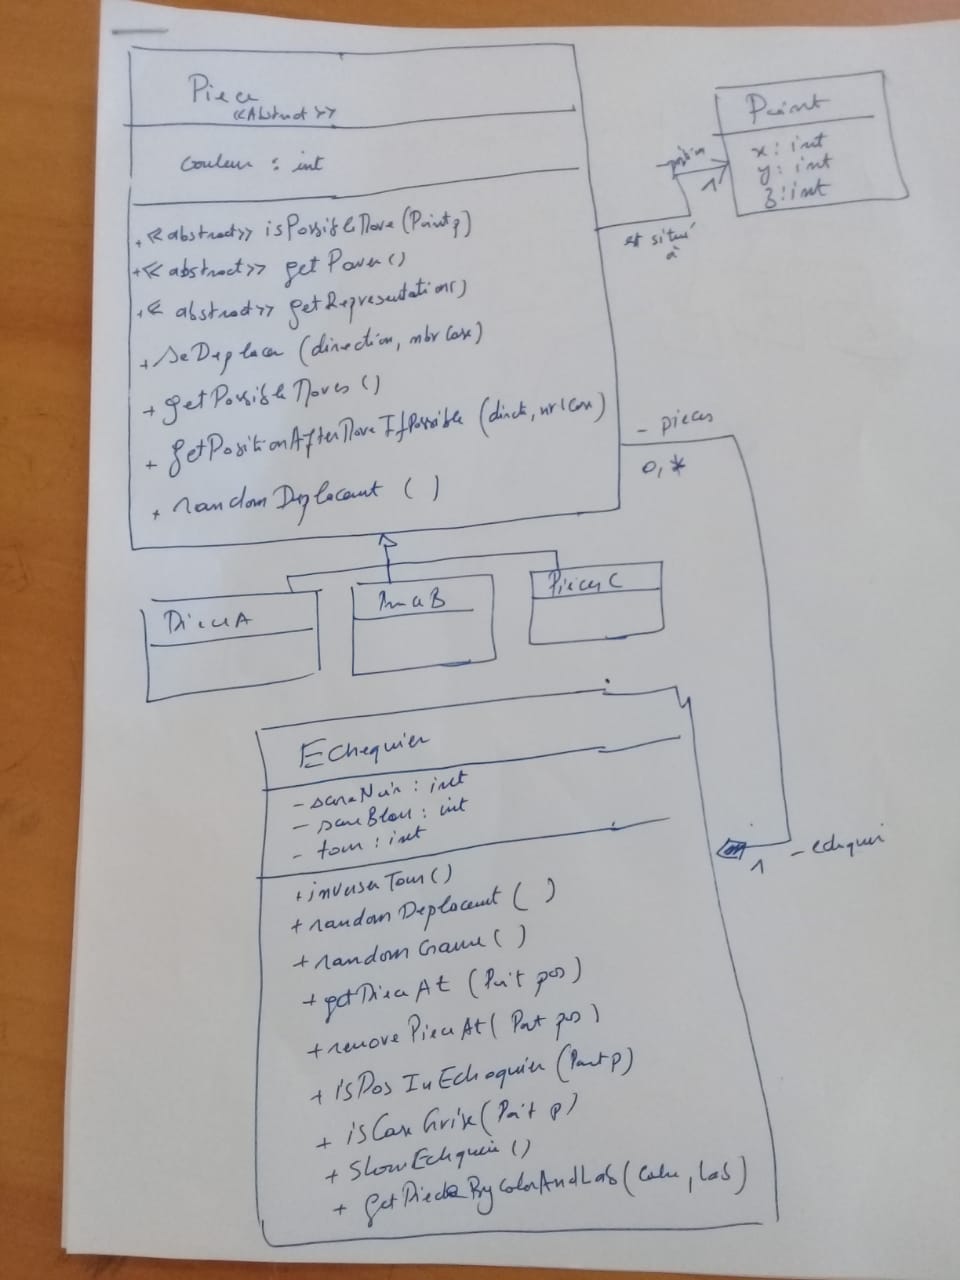 Piece
<<Abstract>>
Couleur : int
+ <<abstract>> isPossibleMove (Point p)
+ <<abstract>> getPower ()
+ << abstract>> getRepresentation()
+ seDeplacer (direction, nbr Case)
+ getPossibleMoves ()
+ getPositionAfterMoveIfPossible (direct, nbrCase)
+ randomDeplacement ( )
Point
x : int
y : int
z : int
position
1
est situé
à
- pieces
0, *
PieceA
PieceB
PiecesC
Echequier
- scoreNoir : int
- scoreBlanc : int
- tour : int
+ inverserTour()
+ randomDeplacement ( )
+ randomGame ( )
+ getPieceAt (Point pos)
+ removePieceAt( Point pos)
+ isPosInEchequier (Point p)
+ isCaseGrise (Point p)
+ ShowEchequier ()
+ getPieceByColorAndLab (color, Lab)
1
- echequier